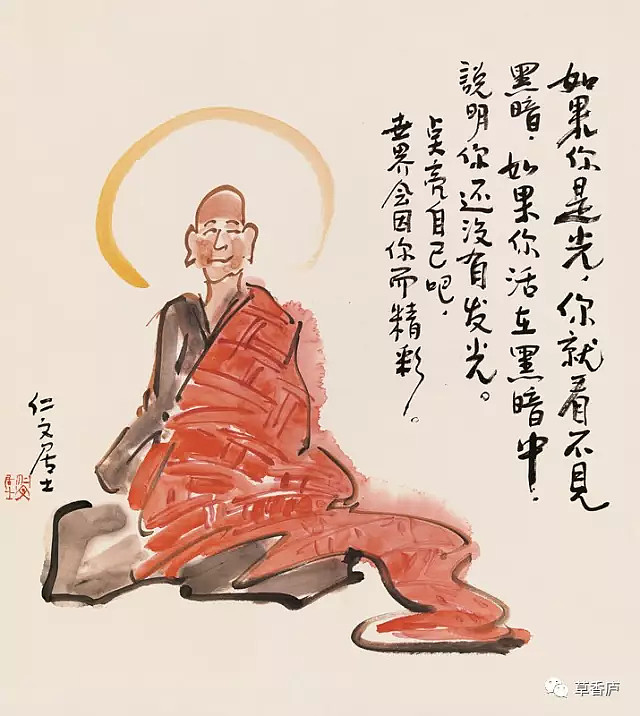 如果你是光，你就看不見
黑暗，如果你活在黑暗中，
説明你还没有发光。
点亮自己吧，
世界会因你而精彩。
仁文居士
草香庐